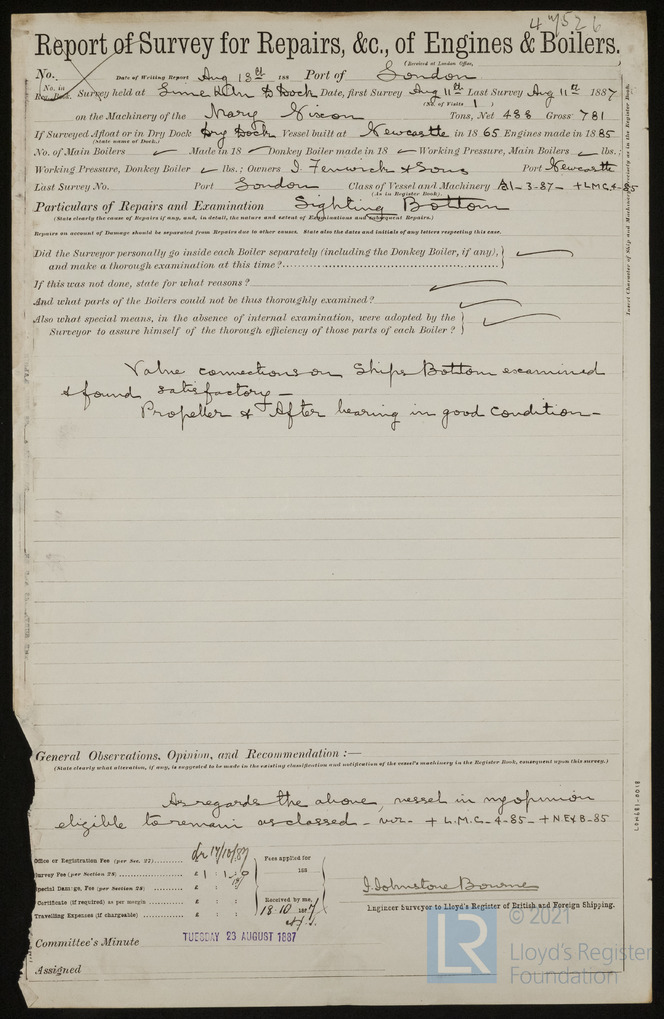 47526
Report of Survey for Repairs, &c., of Engines & Boilers.
(Received at London Office,
No. Date of Writing Report Aug 13th 188 Port of London
No. in Reg. Book. Survey held at Lime Kiln D Dock Date, first Survey Aug 11th Last Survey Aug 11th 1887
(No. of Visits 1)
on the Machinery of the Mary Nixon Tons, Net 488 Gross 781
If Surveyed Afloat or in Dry Dock Dry Dock Vessel built at Newcastle in 1865 Engines made in 1885
(State name of Dock.)
No. of Main Boilers ✓ Made in 18 ✓ Donkey Boiler made in 18 ✓ Working Pressure, Main Boilers ✓ lbs.;
Working Pressure, Donkey Boiler ✓ lbs.; Owners J. Fenwick & Sons Port Newcastle
Last Survey No. Port London Class of Vessel and Machinery A1-3-87- + L.M.C. 4-85
(As in Register Book).
Particulars of Repairs and Examination Sighting Bottom
(State clearly the cause of Repairs if any, and, in detail, the nature and extent of Examinations and subsequent Repairs.)
Repairs on account of Damage should be separated from Repairs due to other causes. State also the dates and initials of any letters respecting this case.
Did the Surveyor personally go inside each Boiler separately (including the Donkey Boiler, if any),
and make a thorough examination at this time?
If this was not done, state for what reasons?
And what parts of the Boilers could not be thus thoroughly examined?
Also what special means, in the absence of internal examination, were adopted by the
Surveyor to assure himself of the thorough efficiency of those parts of each Boiler?
Insert Character of Ship and Machinery precisely as in the Register Book.
Valve connections on Ships Bottom examined
& found satisfactory -
Propeller & After bearing in good condition -
General Observations, Opinion, and Recommendation :—
(State clearly what alteration, if any, is suggested to be made in the existing classification and notification of the vessel's machinery in the Register Book, consequent upon this survey.)
As regards the above, vessel in my opinion
eligible to remain as classed - viz. - + L.M.C. 4-85- + N.E&B-85
LON681-0018
Office or Registration Fee (per Sec. 27)
17/10/87
Survey Fee (per Section 28) £ 1 : 1 : 0
Special Damage, Fee (per Section 28) £ : :
Certificate (if required) as per margin : :
Travelling Expenses (if chargeable) £ : :
Fees applied for
188
Received by me,
18.10.1887
J. Johnstone Bourne
Engineer Surveyor to Lloyd's Register of British and Foreign Shipping.
Committee's Minute TUESDAY 23 AUGUST 1887
Assigned
LR
© 2021
Lloyd's Register
Foundation